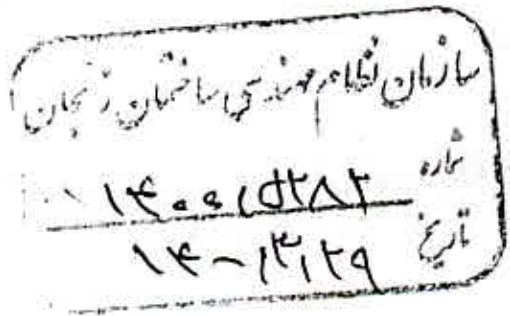 سازمان نظام مهندسی ساختمان زنجان
شماره ۱۴۰۰/۵۲۸۲
تاریخ ۱۴۰۰/۳/۲۹